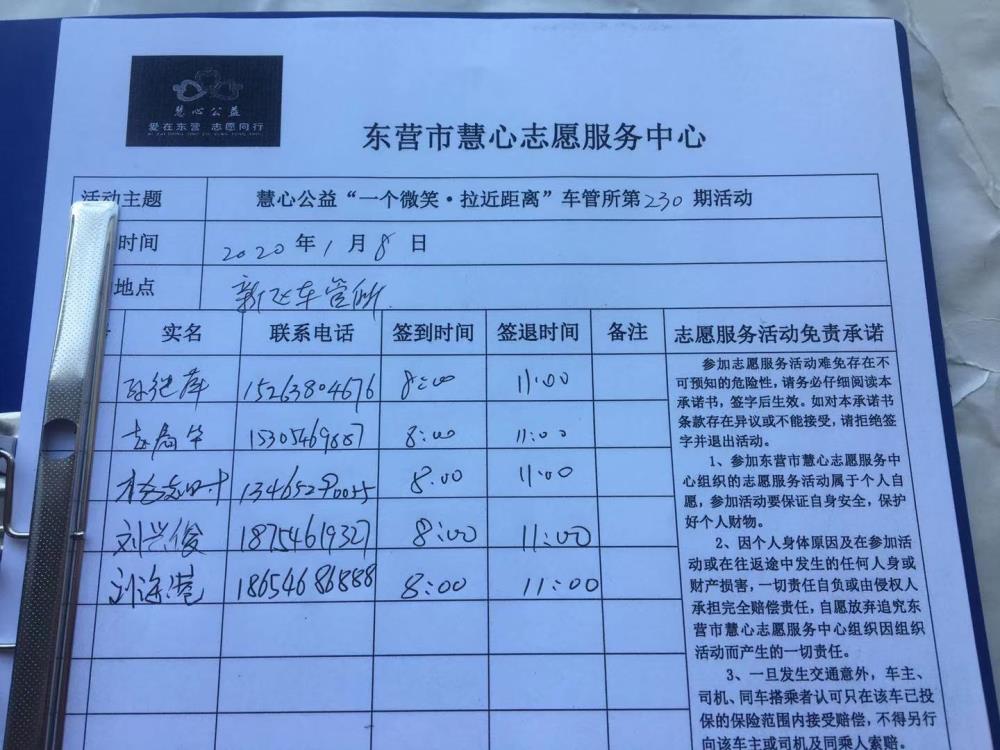 慧心公益
爱在东营 志愿向行
东营市慧心志愿服务中心
活动主题 慧心公益“一个微笑·拉近距离”车管所第230期活动
时间 2020年1月8日
地点 新飞车管所
实名 联系电话 签到时间 签退时间 备注 志愿服务活动免责承诺
15263804676 8:00 11:00
8:00 11:00
8:00 11:00
刘兴俊 18754619327 8:00 11:00
18654686888 8:00 11:00
参加志愿服务活动难免存在不
可预知的危险性，请务必仔细阅读本
承诺书，签字后生效。如对本承诺书
条款存在异议或不能接受，请拒绝签
字并退出活动。
1、参加东营市慧心志愿服务中
心组织的志愿服务活动属于个人自
愿，参加活动要保证自身安全，保护
好个人财物。
2、因个人身体原因及在参加活
动或在往返途中发生的任何人身或
财产损害，一切责任自负或由侵权人
承担完全赔偿责任，自愿放弃追究东
营市慧心志愿服务中心组织因组织
活动而产生的一切责任。
3、一旦发生交通意外，车主、
司机、同车搭乘者认可只在该车已投
保的保险范围内接受赔偿，不得另行
向该车主或司机及同乘人索赔。